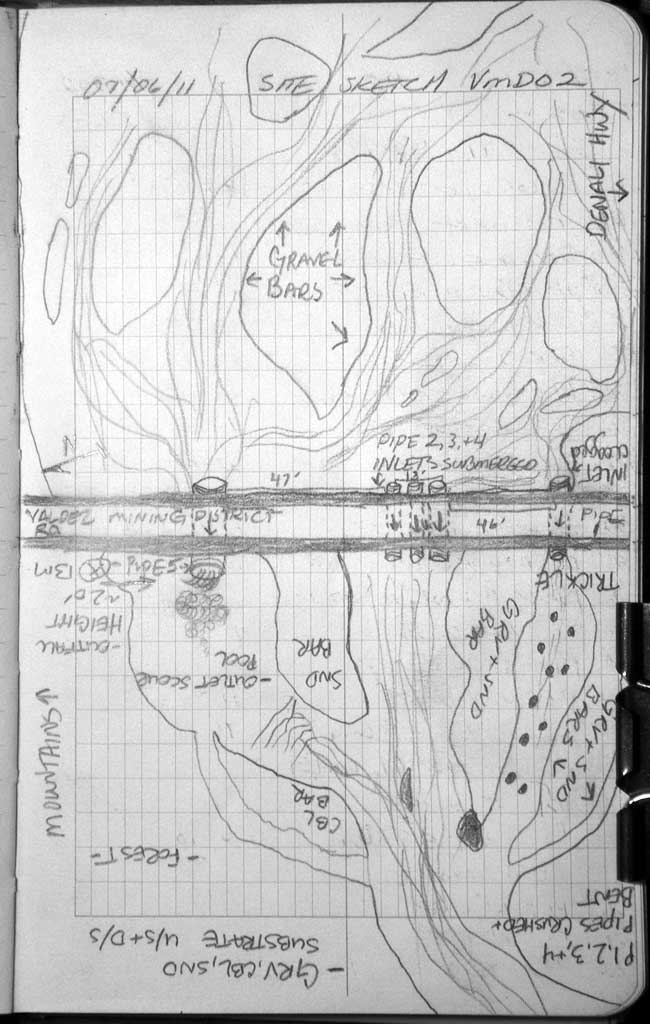 07/06/11 SITE SKETCH VMD02
DENALI HWY
GRAVEL
BARS
PIPE 2,3,+4
INLETS SUBMERGED
INLET
clogged
47'
13'
VALDEZ MINING DISTRICT
RD
46'
TRICKLE
BM
~2.0'
HEIGHT
-OUTFALL
-OUTLET SCOUR
POOL
SND
BAR
GRV + SND
BAR
GRV + SND
BARS
MOUNTAINS
CBL
BAR
-FOREST-
-GRV, CBL, SND
SUBSTRATE U/S + D/S
P1,2,3,+4
PIPES CRUSHED+
BENT